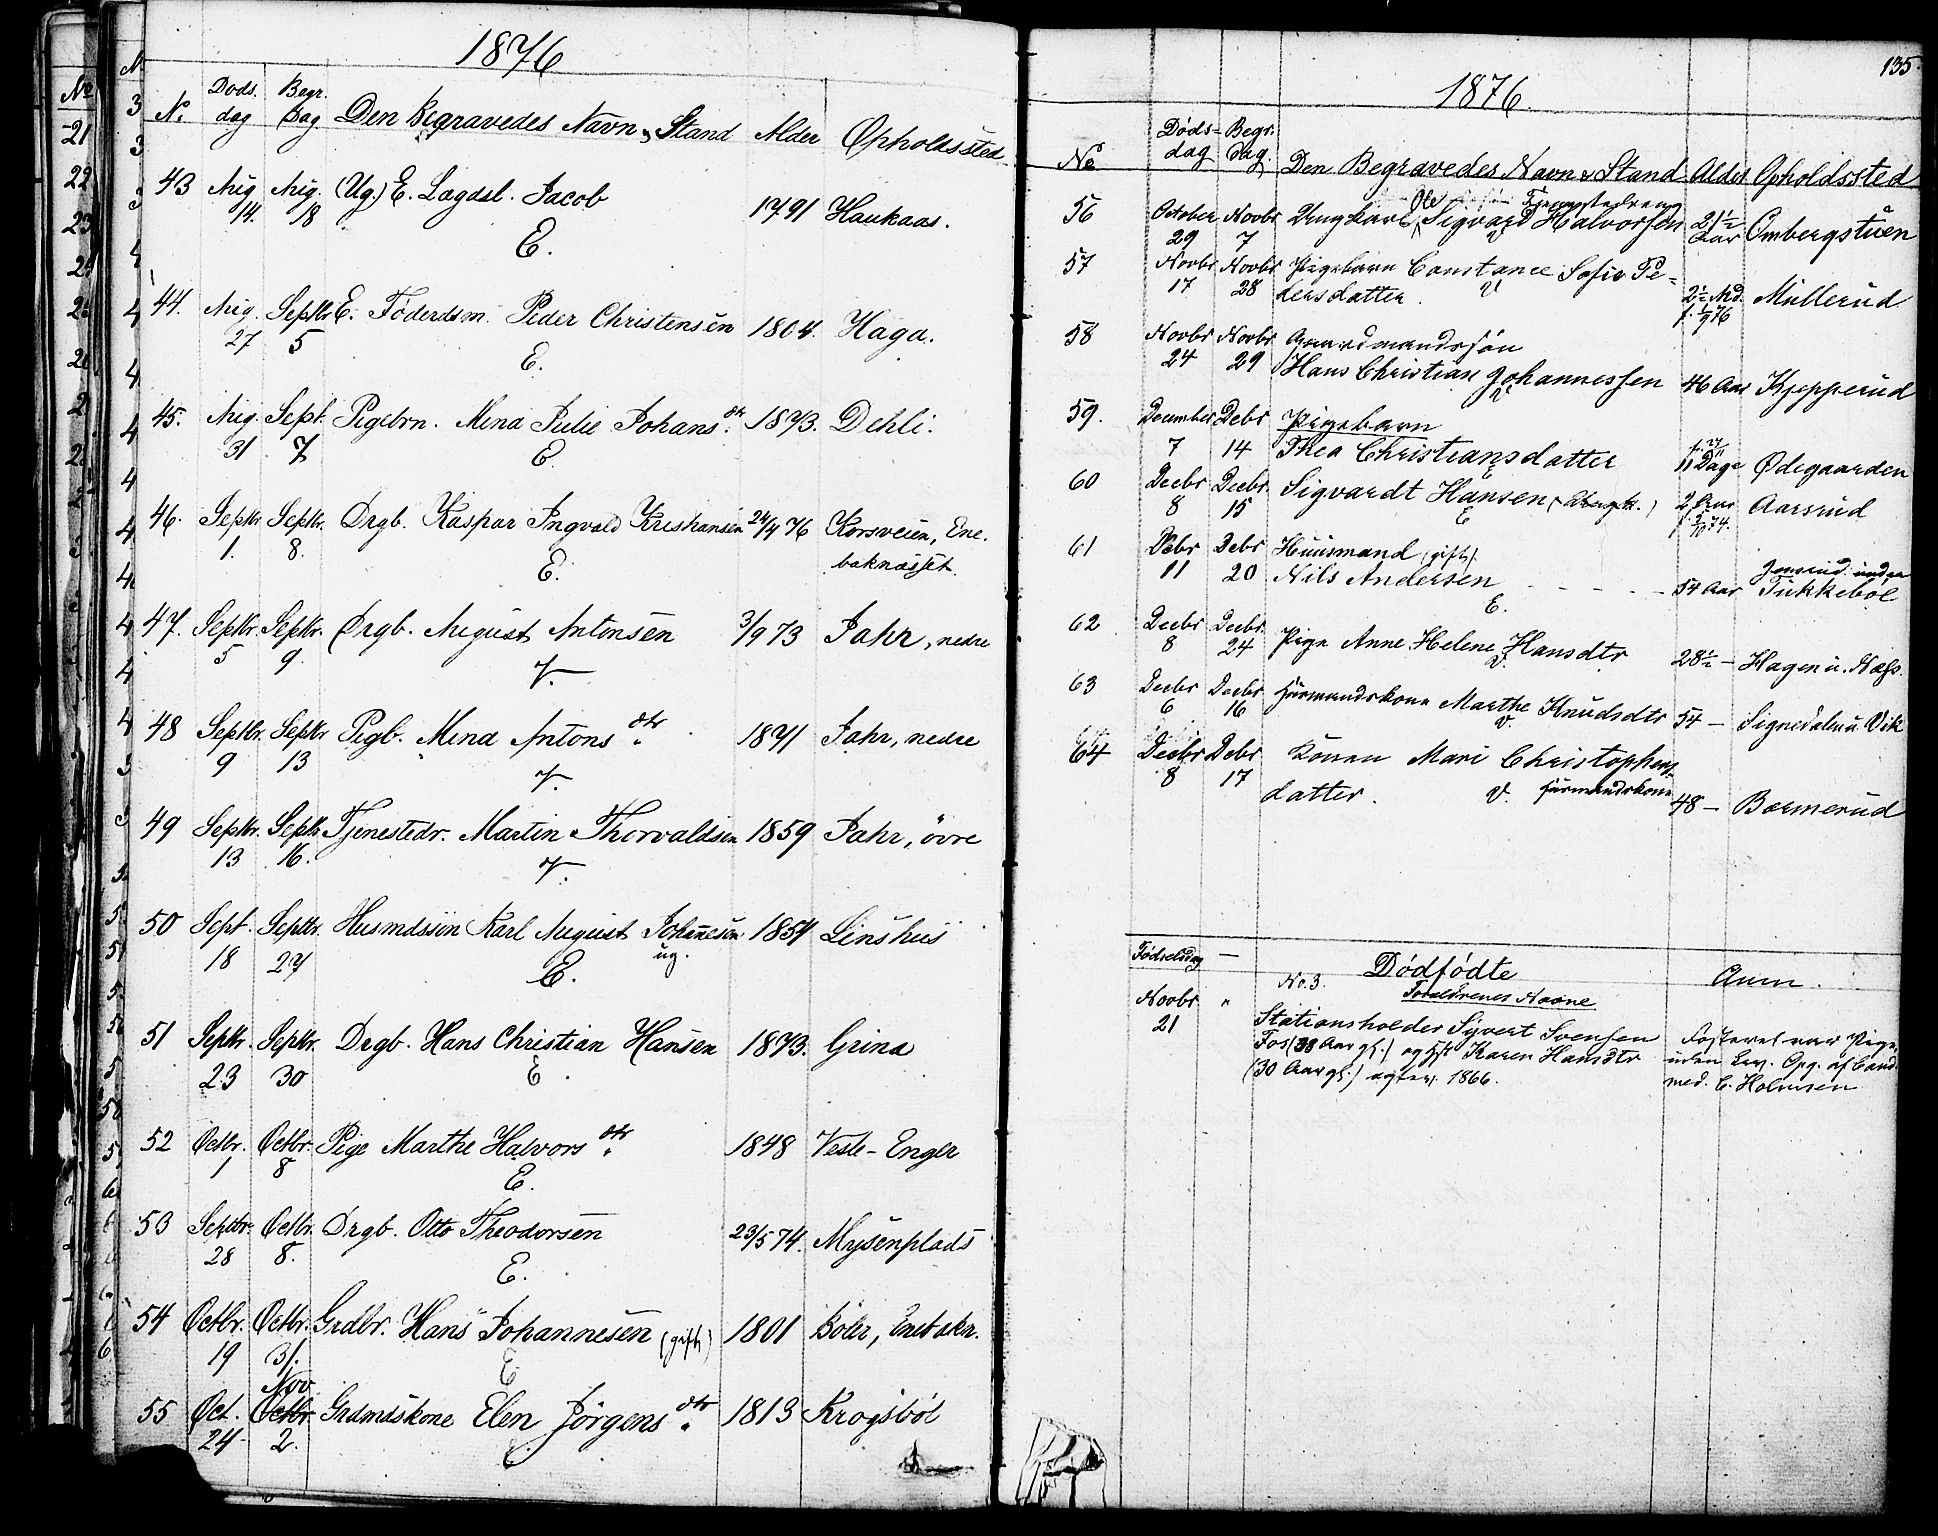 1876
No. Døds. dag Begr. Dag Den Begravedes Navn & Stand Alder Opholdssted
43 Aug. 14. Aug. 18 (Ug.) E. Lægdsl. Jacob 1791 Haukaas.
E.
44. Aug. 27 Septbr 5 E. Föderdsm. Peder Christensen 1804. Haga.
E.
45. Aug. 31 Sept. 7 Pigebrn. Mina Julie Johans dtr. 1873. Dehli.
E.
46. Septbr. 1. Septbr. 8. Drgb. Kaspar Ingvald Kristiansen 24/4 76 Korsveien, Ene-
baknæsset.
E.
47. Septbr. 5 Septbr. 9. Drgb. August Antonsen 3/9 73 Jahr, nedre
V.
48 Septbr. 9 Septbr 13 Pigb. Mina Antons dtr. 1871 Jahr, nedre
V.
49 Septbr. 13 Septbr. 16. Tjenestedr. Martin Thorvaldsen 1859 Jahr, övre
V.
50 Sept. 18 Septbr. 27 Husmdssön Karl August Johannesen 1854 Linshus
ug.
E.
51 Septbr. 23 Septbr. 30 Drgb. Hans Christian Hansen 1873. Grina
E.
52 Octbr. 1 Octbr. 8 Pige Marthe Halvors dtr. 1848 Vesle-Enger
E.
53 Septbr. 28 Octbr. 8. Drgb. Otto Theodorsen 23/5 74. Mysenplads
E.
54 Octbr. 19 Octbr. 31. Grdbr. Hans Johannesen (gift) 1801 Böler, Enebakn.
E
55 Oct. 24 Nov Octbr. 2. Grdmdskone Elen Jörgens dtr. 1813 Krogsböl
E.
135.
1876.
No Døds-dag Begr: Dag. Den Begravedes Navn & Stand Alder Opholdssted
Ole Tjenestedreng
56 October 29 Novbr 7 Ungkarl Sigvard Halvorsen 21½ Aar Ombergstuen
V
57 Novbr 17 Novbr 28 Pigebarn Constance Sofie Pe-
dersdatter. 2½ Md. Müllerud
V
58 Novbr 24 Novbr 29 Gaardmandssön
Hans Christian Johannessen 46 Aar Kjepperud
V
59. December 7 Debr 14 Pigebarn
Thea Christiansdatter 11 Dage Ødegaarden
E
60 Decbr 8 Decbr. 15 Sigvardt Hansen 2 Aar Aarsrud
E
61 Debr 11 Debr 20 Huusmand (gift).
Nils Andersen 54 Aar Jonsrud under
Tukkeböl
E.
62 Decbr 8 Decbr. 24 Pige Anne Helene Hansdtr 28½ — Hagen u. Næss.
V.
63 Decbr 6 Decbr 16 Huusmandskone Marthe Knudsdtr 54 — Signedalen u. Vik
V.
64 Decbr 8 Debr 17 Konen Mari Christophers-
datter. V. Huusmandskone 48 — Bærmerud
Fødselsdag — Dödfödte Anm.
No. 3. Forældrenes Navne
Novbr 21 " Stationsholder Syvert Svensen
Fos (38 Aar gl.) og Hst Karen Hansdtr
(30 Aar gl.) egtev. 1866.
Fosteret var Pige,
uden Lev. Opg. af Cand.
med. C. Holmsen